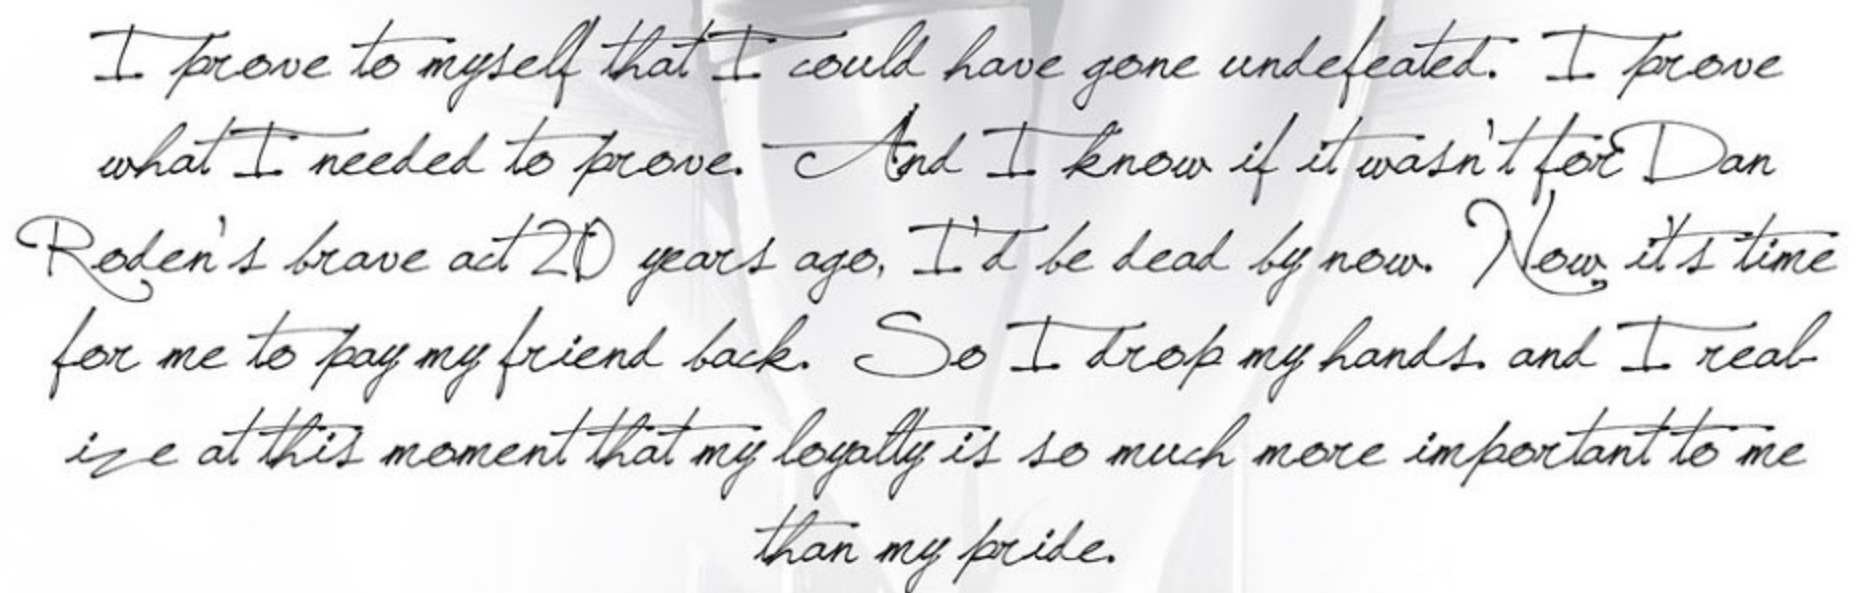 I prove to myself that I could have gone undefeated. I prove
what I needed to prove. And I know if it wasn't for Dan
Roden's brave act 20 years ago, I'd be dead by now. Now, it's time
for me to pay my friend back. So I drop my hands. and I real-
ize at this moment that my loyalty is so much more important to me
than my pride.